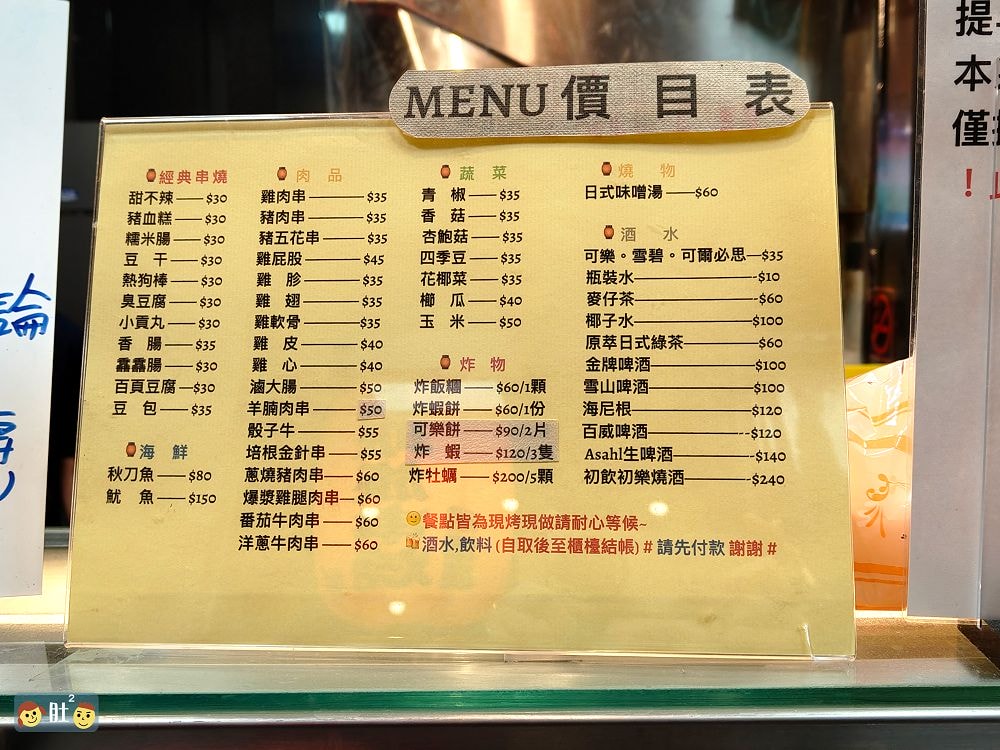 MENU 價目表
經典串燒
甜不辣 $30
豬血糕 $30
糯米腸 $30
豆干 $30
熱狗棒 $30
臭豆腐 $30
小貢丸 $30
香腸 $35
靐靐腸 $30
百頁豆腐 $30
豆包 $35
海鮮
秋刀魚 $80
魷魚 $150
肉品
雞肉串 $35
豬肉串 $35
豬五花串 $35
雞屁股 $45
雞胗 $35
雞翅 $35
雞軟骨 $35
雞皮 $40
雞心 $40
滷大腸 $50
羊腩肉串 $50
骰子牛 $55
培根金針串 $55
蔥燒豬肉串 $60
爆漿雞腿肉串 $60
番茄牛肉串 $60
洋蔥牛肉串 $60
蔬菜
青椒 $35
香菇 $35
杏鮑菇 $35
四季豆 $35
花椰菜 $35
櫛瓜 $40
玉米 $50
炸物
炸飯糰 $60/1顆
炸蝦餅 $60/1份
可樂餅 $90/2片
炸蝦 $120/3隻
炸牡蠣 $200/5顆
燒物
日式味噌湯 $60
酒水
可樂。雪碧。可爾必思 $35
瓶裝水 $10
麥仔茶 $60
椰子水 $100
原萃日式綠茶 $60
金牌啤酒 $100
雪山啤酒 $100
海尼根 $120
百威啤酒 $120
AsahI生啤酒 $140
初飲初樂燒酒 $240
餐點皆為現烤現做請耐心等候~
酒水,飲料(自取後至櫃檯結帳)#請先付款 謝謝#
論
提
本
僅
！
肚2